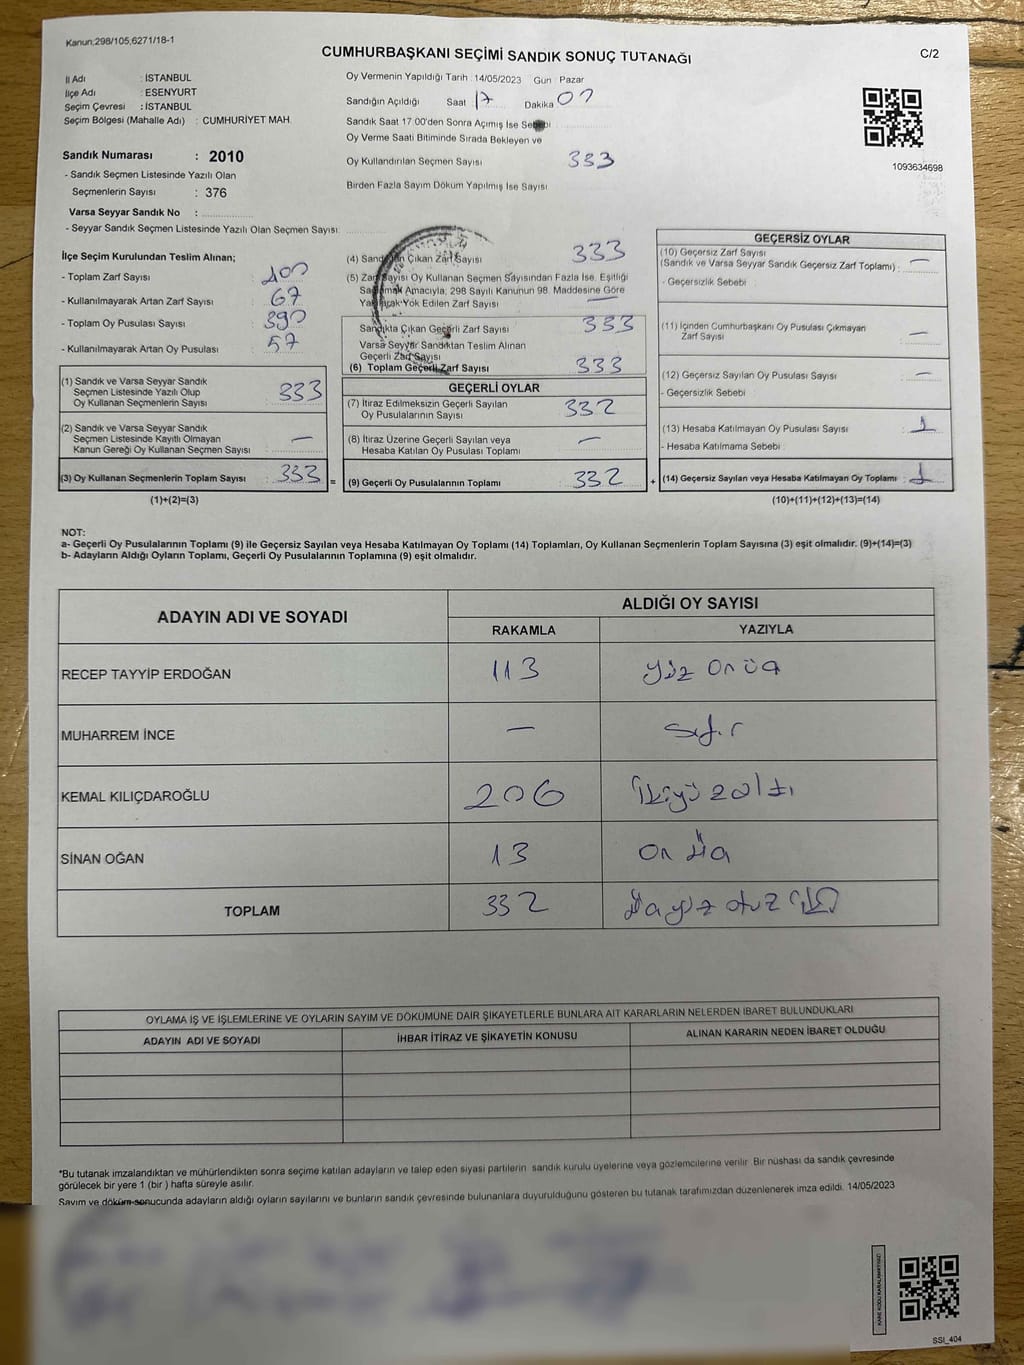 Kanun;298/105;6271/18-1
CUMHURBAŞKANI SEÇİMİ SANDIK SONUÇ TUTANAĞI
C/2
İl Adı : İSTANBUL
İlçe Adı : ESENYURT
Seçim Çevresi : İSTANBUL
Seçim Bölgesi (Mahalle Adı) : CUMHURİYET MAH.
Oy Vermenin Yapıldığı Tarih : 14/05/2023 Gün : Pazar
Sandığın Açıldığı Saat 17 Dakika 01
Sandık Saat 17:00'den Sonra Açımış İse Sebebi
Oy Verme Saati Bitiminde Sırada Bekleyen ve
Oy Kullandırılan Seçmen Sayısı 333
Birden Fazla Sayım Döküm Yapılmış İse Sayısı
1093634698
Sandık Numarası : 2010
- Sandık Seçmen Listesinde Yazılı Olan
Seçmenlerin Sayısı : 376
Varsa Seyyar Sandık No :
- Seyyar Sandık Seçmen Listesinde Yazılı Olan Seçmen Sayısı:
İlçe Seçim Kurulundan Teslim Alınan;
- Toplam Zarf Sayısı : 400
- Kullanılmayarak Artan Zarf Sayısı : 67
- Toplam Oy Pusulası Sayısı : 390
- Kullanılmayarak Artan Oy Pusulası : 57
(1) Sandık ve Varsa Seyyar Sandık
Seçmen Listesinde Yazılı Olup
Oy Kullanan Seçmenlerin Sayısı : 333
(2) Sandık ve Varsa Seyyar Sandık
Seçmen Listesinde Kayıtlı Olmayan
Kanun Gereği Oy Kullanan Seçmen Sayısı : —
(3) Oy Kullanan Seçmenlerin Toplam Sayısı : 333 =
(1)+(2)=(3)
(4) Sandıktan Çıkan Zarf Sayısı 333
(5) Zarf Sayısı Oy Kullanan Seçmen Sayısından Fazla İse, Eşitliği
Sağlamak Amacıyla; 298 Sayılı Kanunun 98. Maddesine Göre
Yakılarak Yok Edilen Zarf Sayısı —
Sandıkta Çıkan Geçerli Zarf Sayısı : 333
Varsa Seyyar Sandıktan Teslim Alınan
Geçerli Zarf Sayısı
(6) Toplam Geçerli Zarf Sayısı : 333
GEÇERLİ OYLAR
(7) İtiraz Edilmeksizin Geçerli Sayılan
Oy Pusulalarının Sayısı : 332
(8) İtiraz Üzerine Geçerli Sayılan veya
Hesaba Katılan Oy Pusulası Toplamı : —
(9) Geçerli Oy Pusulalarının Toplamı : 332 +
GEÇERSİZ OYLAR
(10) Geçersiz Zarf Sayısı
(Sandık ve Varsa Seyyar Sandık Geçersiz Zarf Toplamı) : —
- Geçersizlik Sebebi :
(11) İçinden Cumhurbaşkanı Oy Pusulası Çıkmayan
Zarf Sayısı : —
(12) Geçersiz Sayılan Oy Pusulası Sayısı : —
- Geçersizlik Sebebi
(13) Hesaba Katılmayan Oy Pusulası Sayısı : 1
- Hesaba Katılmama Sebebi :
(14) Geçersiz Sayılan veya Hesaba Katılmayan Oy Toplamı : 1
(10)+(11)+(12)+(13)=(14)
NOT:
a- Geçerli Oy Pusulalarının Toplamı (9) ile Geçersiz Sayılan veya Hesaba Katılmayan Oy Toplamı (14) Toplamları, Oy Kullanan Seçmenlerin Toplam Sayısına (3) eşit olmalıdır. (9)+(14)=(3)
b- Adayların Aldığı Oyların Toplamı, Geçerli Oy Pusulalarının Toplamına (9) eşit olmalıdır.
ADAYIN ADI VE SOYADI ALDIĞI OY SAYISI
RAKAMLA YAZIYLA
RECEP TAYYİP ERDOĞAN 113 yüz onüç
MUHARREM İNCE — sıfır
KEMAL KILIÇDAROĞLU 206 ikiyüzaltı
SİNAN OĞAN 13 on üç
TOPLAM 332 üçyüz otuz iki
OYLAMA İŞ VE İŞLEMLERİNE VE OYLARIN SAYIM VE DÖKÜMÜNE DAİR ŞİKAYETLERLE BUNLARA AİT KARARLARIN NELERDEN İBARET BULUNDUKLARI
ADAYIN ADI VE SOYADI İHBAR İTİRAZ VE ŞİKAYETİN KONUSU ALINAN KARARIN NEDEN İBARET OLDUĞU
*Bu tutanak imzalandıktan ve mühürlendikten sonra seçime katılan adayların ve talep eden siyasi partilerin sandık kurulu üyelerine veya gözlemcilerine verilir. Bir nüshası da sandık çevresinde
görülecek bir yere 1 (bir ) hafta süreyle asılır.
Sayım ve döküm sonucunda adayların aldığı oyların sayılarını ve bunların sandık çevresinde bulunanlara duyurulduğunu gösteren bu tutanak tarafımızdan düzenlenerek imza edildi. 14/05/2023
KARE KODU KARALAMAYINIZ!
SSI_404